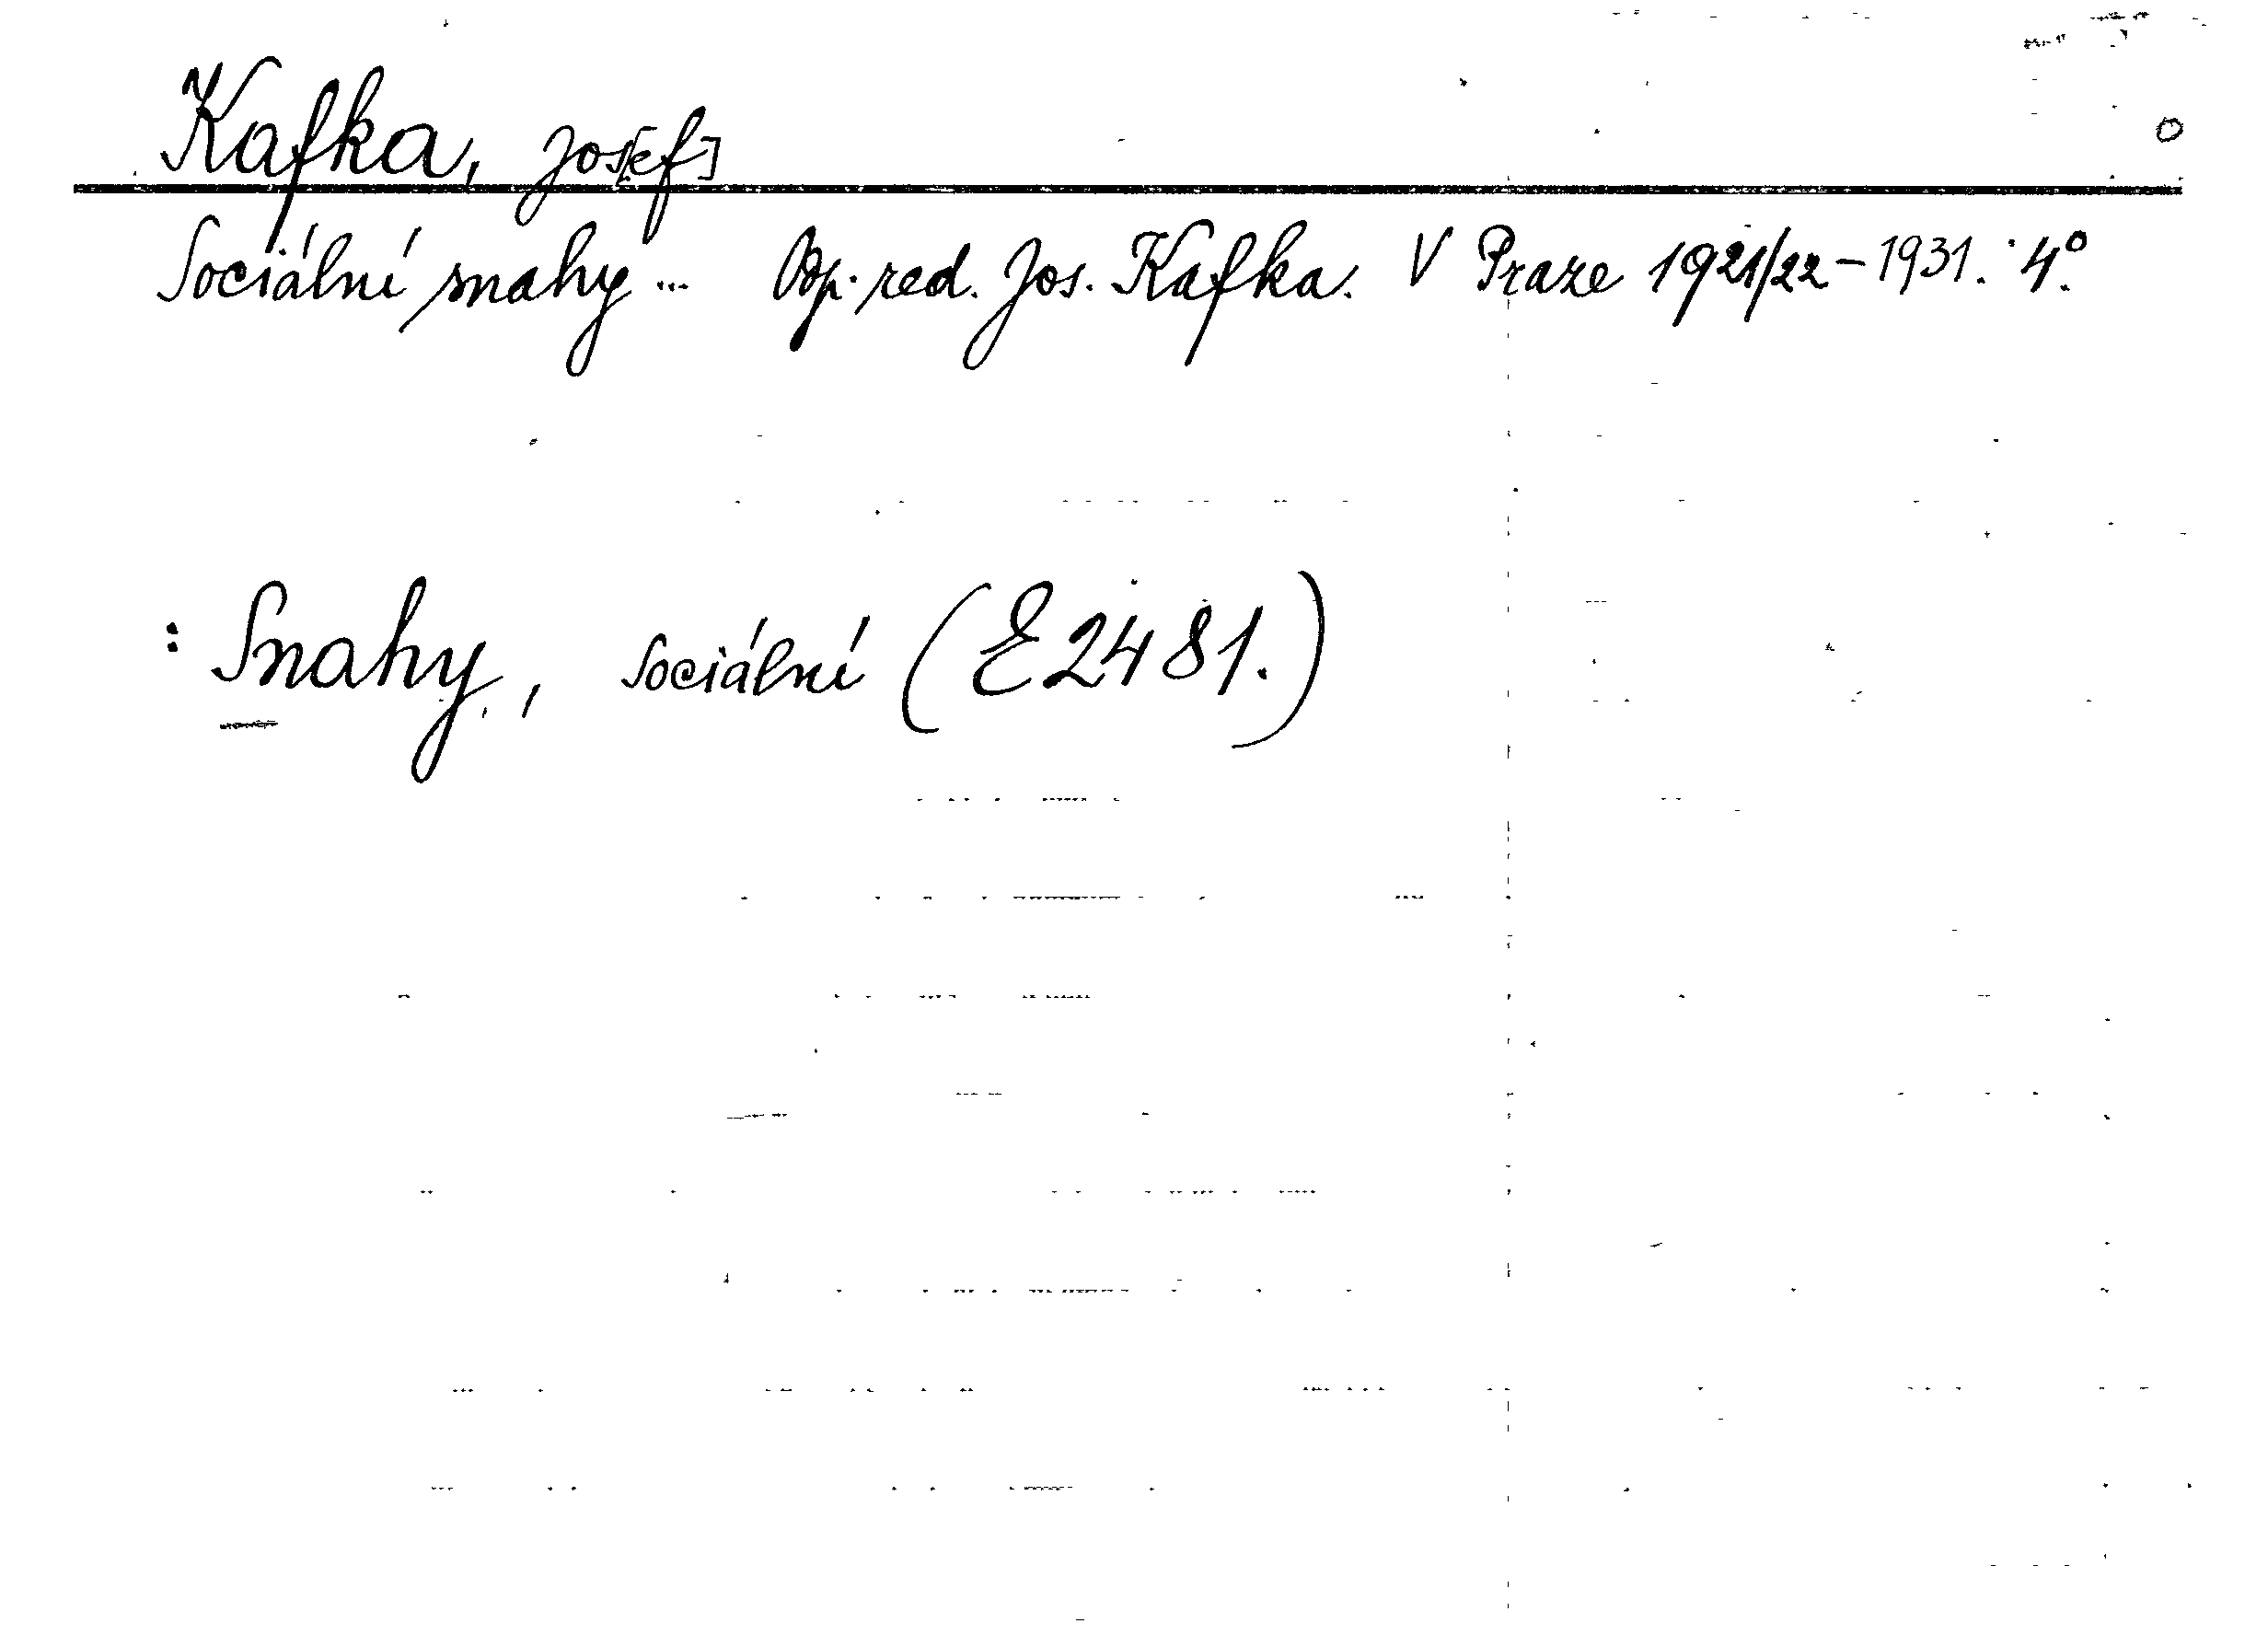 Kafka, Jos[ef]
Sociální snahy... Odp. red. Jos. Kafka. V Praze 1921/22-1931. 4°.
: Snahy, sociální (E 2481.)